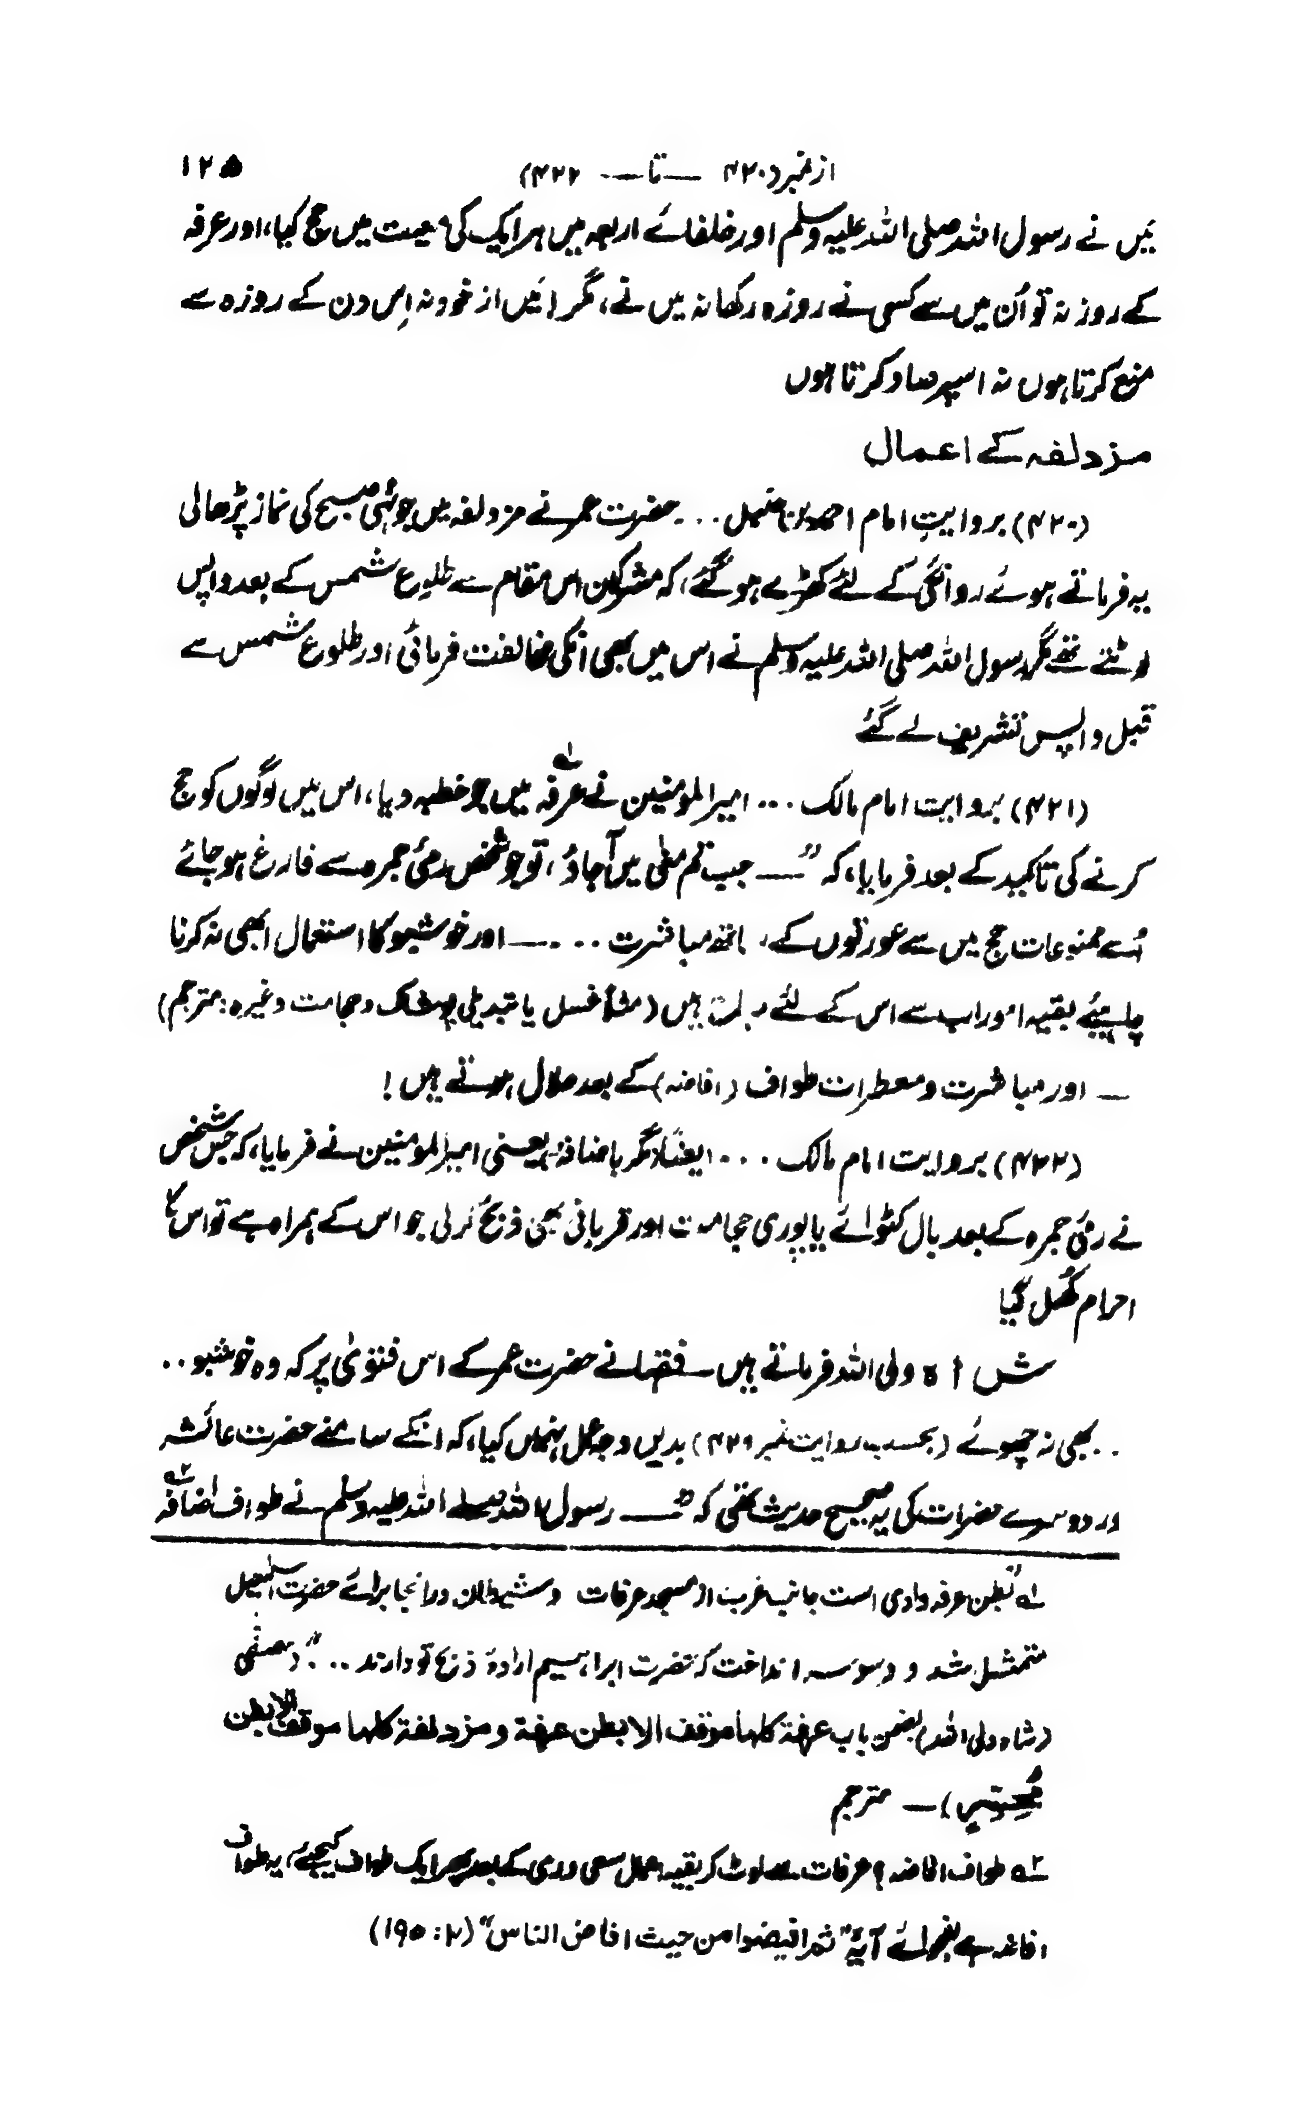 از نمبر (۴۲۰ — تا — ۴۲۲) ۱۲۵
میں نے رسول اللہ صلی اللہ علیہ وسلم اور خلفائے اربعہ میں ہر ایک کی معیت میں حج کیا، اور عرفہ
کے روز نہ تو اُن میں سے کسی نے روزہ رکھا نہ میں نے، مگر (میں از خود نہ اِس دن کے روزہ سے
منع کرتا ہوں نہ اسپر صاد کرتا ہوں
مزدلفہ کے اعمال
(۴۲۰) بروایتِ امام احمد بن حنبل ... حضرت عمر نے مزدلفہ میں جونہی صبح کی نماز پڑھالی
یہ فرماتے ہوئے روانگی کے لئے کھڑے ہو گئے، کہ مشرکین اس مقام سے طلوع شمس کے بعد واپس
لوٹتے تھے مگر رسول اللہ صلی اللہ علیہ وسلم نے اس میں بھی انکی مخالفت فرمائی اور طلوع شمس سے
قبل واپس تشریف لے گئے
(۴۲۱) بروایت امام مالک ... امیر المومنین نے عرفہ ؁۱ میں جو خطبہ دیا، اس میں لوگوں کو حج
کرنے کی تاکید کے بعد فرمایا، کہ "— جب تم منٰی میں آجاؤ، تو جو شخص رمئ جمرہ سے فارغ ہو جائے
اُسے ممنوعات حج میں سے عورتوں کے ساتھ مباشرت ... — اور خوشبو کا استعمال ابھی نہ کرنا
چاہیئے بقیہ امور اب سے اس کے لئے مباح ہیں (مثلاً غسل یا تبدیلی پوشاک و حجامت وغیرہ: مترجم)
— اور مباشرت و معطرات طواف (افاضہ) کے بعد حلال ہوتے ہیں!
(۴۲۲) بروایت امام مالک ... ایضاً مگر باضافۂ یعنی امیر المومنین نے فرمایا، کہ جس شخص
نے رمئ جمرہ کے بعد بال کٹوائے یا پوری حجامت اور قربانی بھی ذبح کر لی جو اس کے ہمراہ ہے تو اس کا
احرام کُھل گیا
ش اہ ولی اللہ فرماتے ہیں — فقہا نے حضرت عمر کے اس فتویٰ پر کہ وہ خوشبو ..
.. بھی نہ چھوئے (بحسب روایت نمبر ۴۲۹) بدیں وجہ عمل نہیں کیا، کہ انکے سامنے حضرت عائشہ
ور دوسرے حضرات کی یہ صحیح حدیث تھی کہ "— رسول اللہ صلے اللہ علیہ وسلم نے طواف افاضہ ؁۲
؁۱ "بطن عرفہ وادی است جانب غرب از مسجد عرفات و شیطان درانجا برائے حضرت اسمٰعیل
متمثل شد و وسوسہ انداخت کہ حضرت ابراہیم ارادۂ ذبح تو دارند ..." (مصفٰی
(شاہ ولی اللہ) بضمن باب عرفۃ کلہا موقف الا بطن عرفۃ و مزدلفۃ کلہا موقف الا بطن
مُحسِّر) — مترجم
؁۲ طواف افاضہ؟ عرفات سے لوٹ کر بقیہ اعمال سعی و رمی کے بعد پھر ایک طواف کیجئے، یہ طواف
افاضہ ہے بفحوائے آیۂ "ثم افیضوا من حیث افاض الناس" (۲: ۱۹۵)